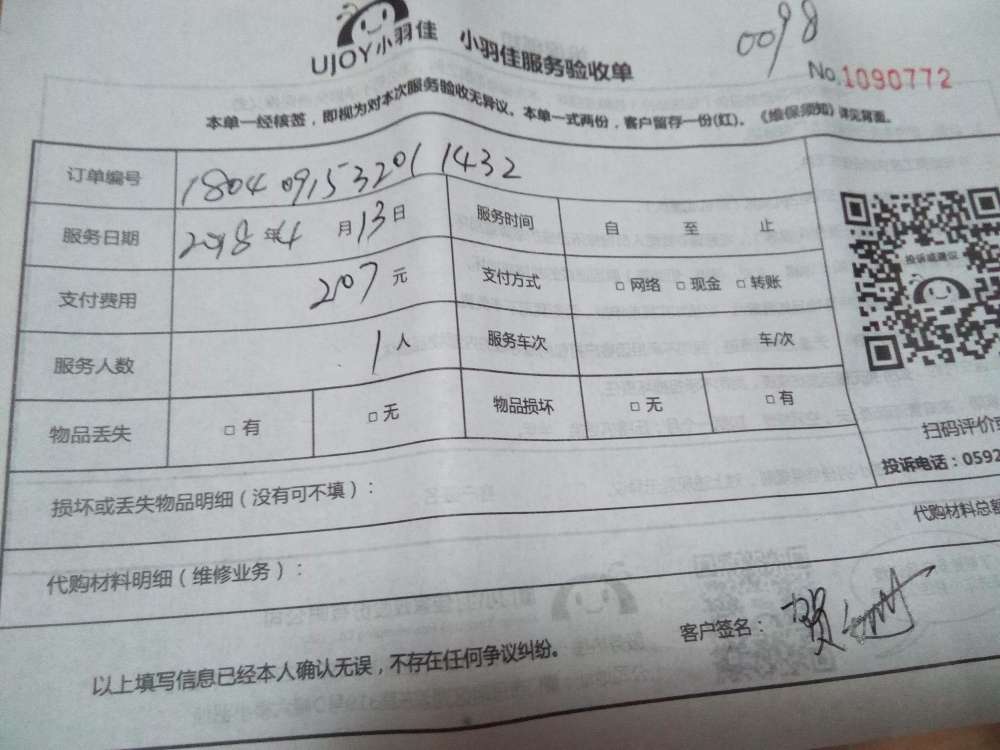 0098
UJOY小羽佳 小羽佳服务验收单
No.1090772
本单一经核签，即视为对本次服务验收无异议。本单一式两份，客户留存一份(红)。《维保须知》详见背面。
订单编号 1804091532011432
服务日期 2018年4月13日 服务时间 自 至 止
支付费用 207元 支付方式 □网络 □现金 □转账
服务人数 1人 服务车次 车/次
物品丢失 □有 □无 物品损坏 □无 □有
投诉或建议
扫码评价
投诉电话：0592
损坏或丢失物品明细（没有可不填）：
代购材料总额
代购材料明细（维修业务）：
客户签名： 贺
以上填写信息已经本人确认无误，不存在任何争议纠纷。